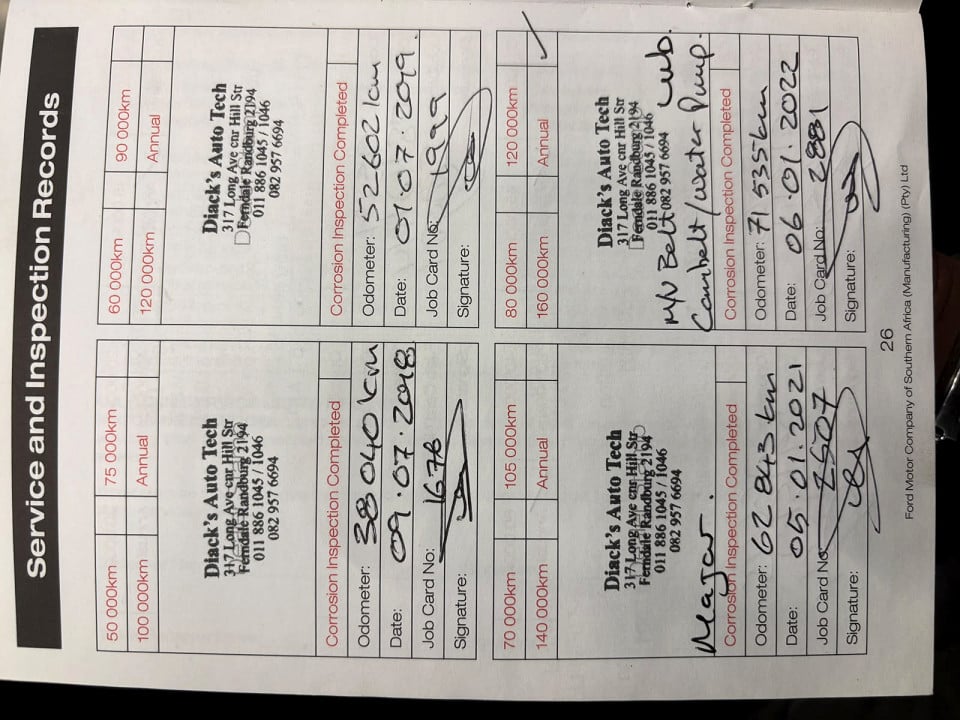 Service and Inspection Records
50 000km 75 000km
100 000km Annual
Diack's Auto Tech
317 Long Ave cnr Hill Str
Ferndale Randburg 2194
011 886 1045 / 1046
082 957 6694
Corrosion Inspection Completed
Odometer: 38040km
Date: 09.07.2018
Job Card No: 1678
Signature:
60 000km 90 000km
120 000km Annual
Diack's Auto Tech
317 Long Ave cnr Hill Str
Ferndale Randburg 2194
011 886 1045 / 1046
082 957 6694
Corrosion Inspection Completed
Odometer: 52602km
Date: 01.07.2019.
Job Card No: 1999
Signature:
70 000km 105 000km
140 000km Annual
Diack's Auto Tech
317 Long Ave cnr Hill Str
Ferndale Randburg 2194
011 886 1045 / 1046
082 957 6694
Major.
Corrosion Inspection Completed
Odometer: 62843km
Date: 05.01.2021
Job Card No: 2507
Signature:
80 000km 120 000km
160 000km Annual
Diack's Auto Tech
317 Long Ave cnr Hill Str
Ferndale Randburg 2194
011 886 1045 / 1046
082 957 6694
Belt
Cambelt/water Pump.
Corrosion Inspection Completed
Odometer: 71535km
Date: 06.01.2022
Job Card No: 2881
Signature:
26
Ford Motor Company of Southern Africa (Manufacturing) (Pty) Ltd